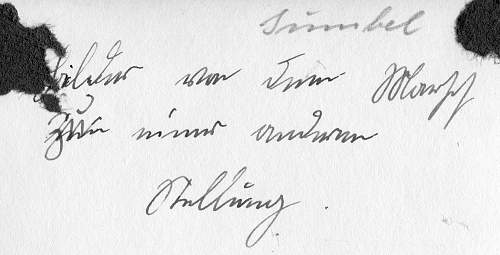 Sumbel
Bilder von dem Marsch
zu einer anderen
Stellung.